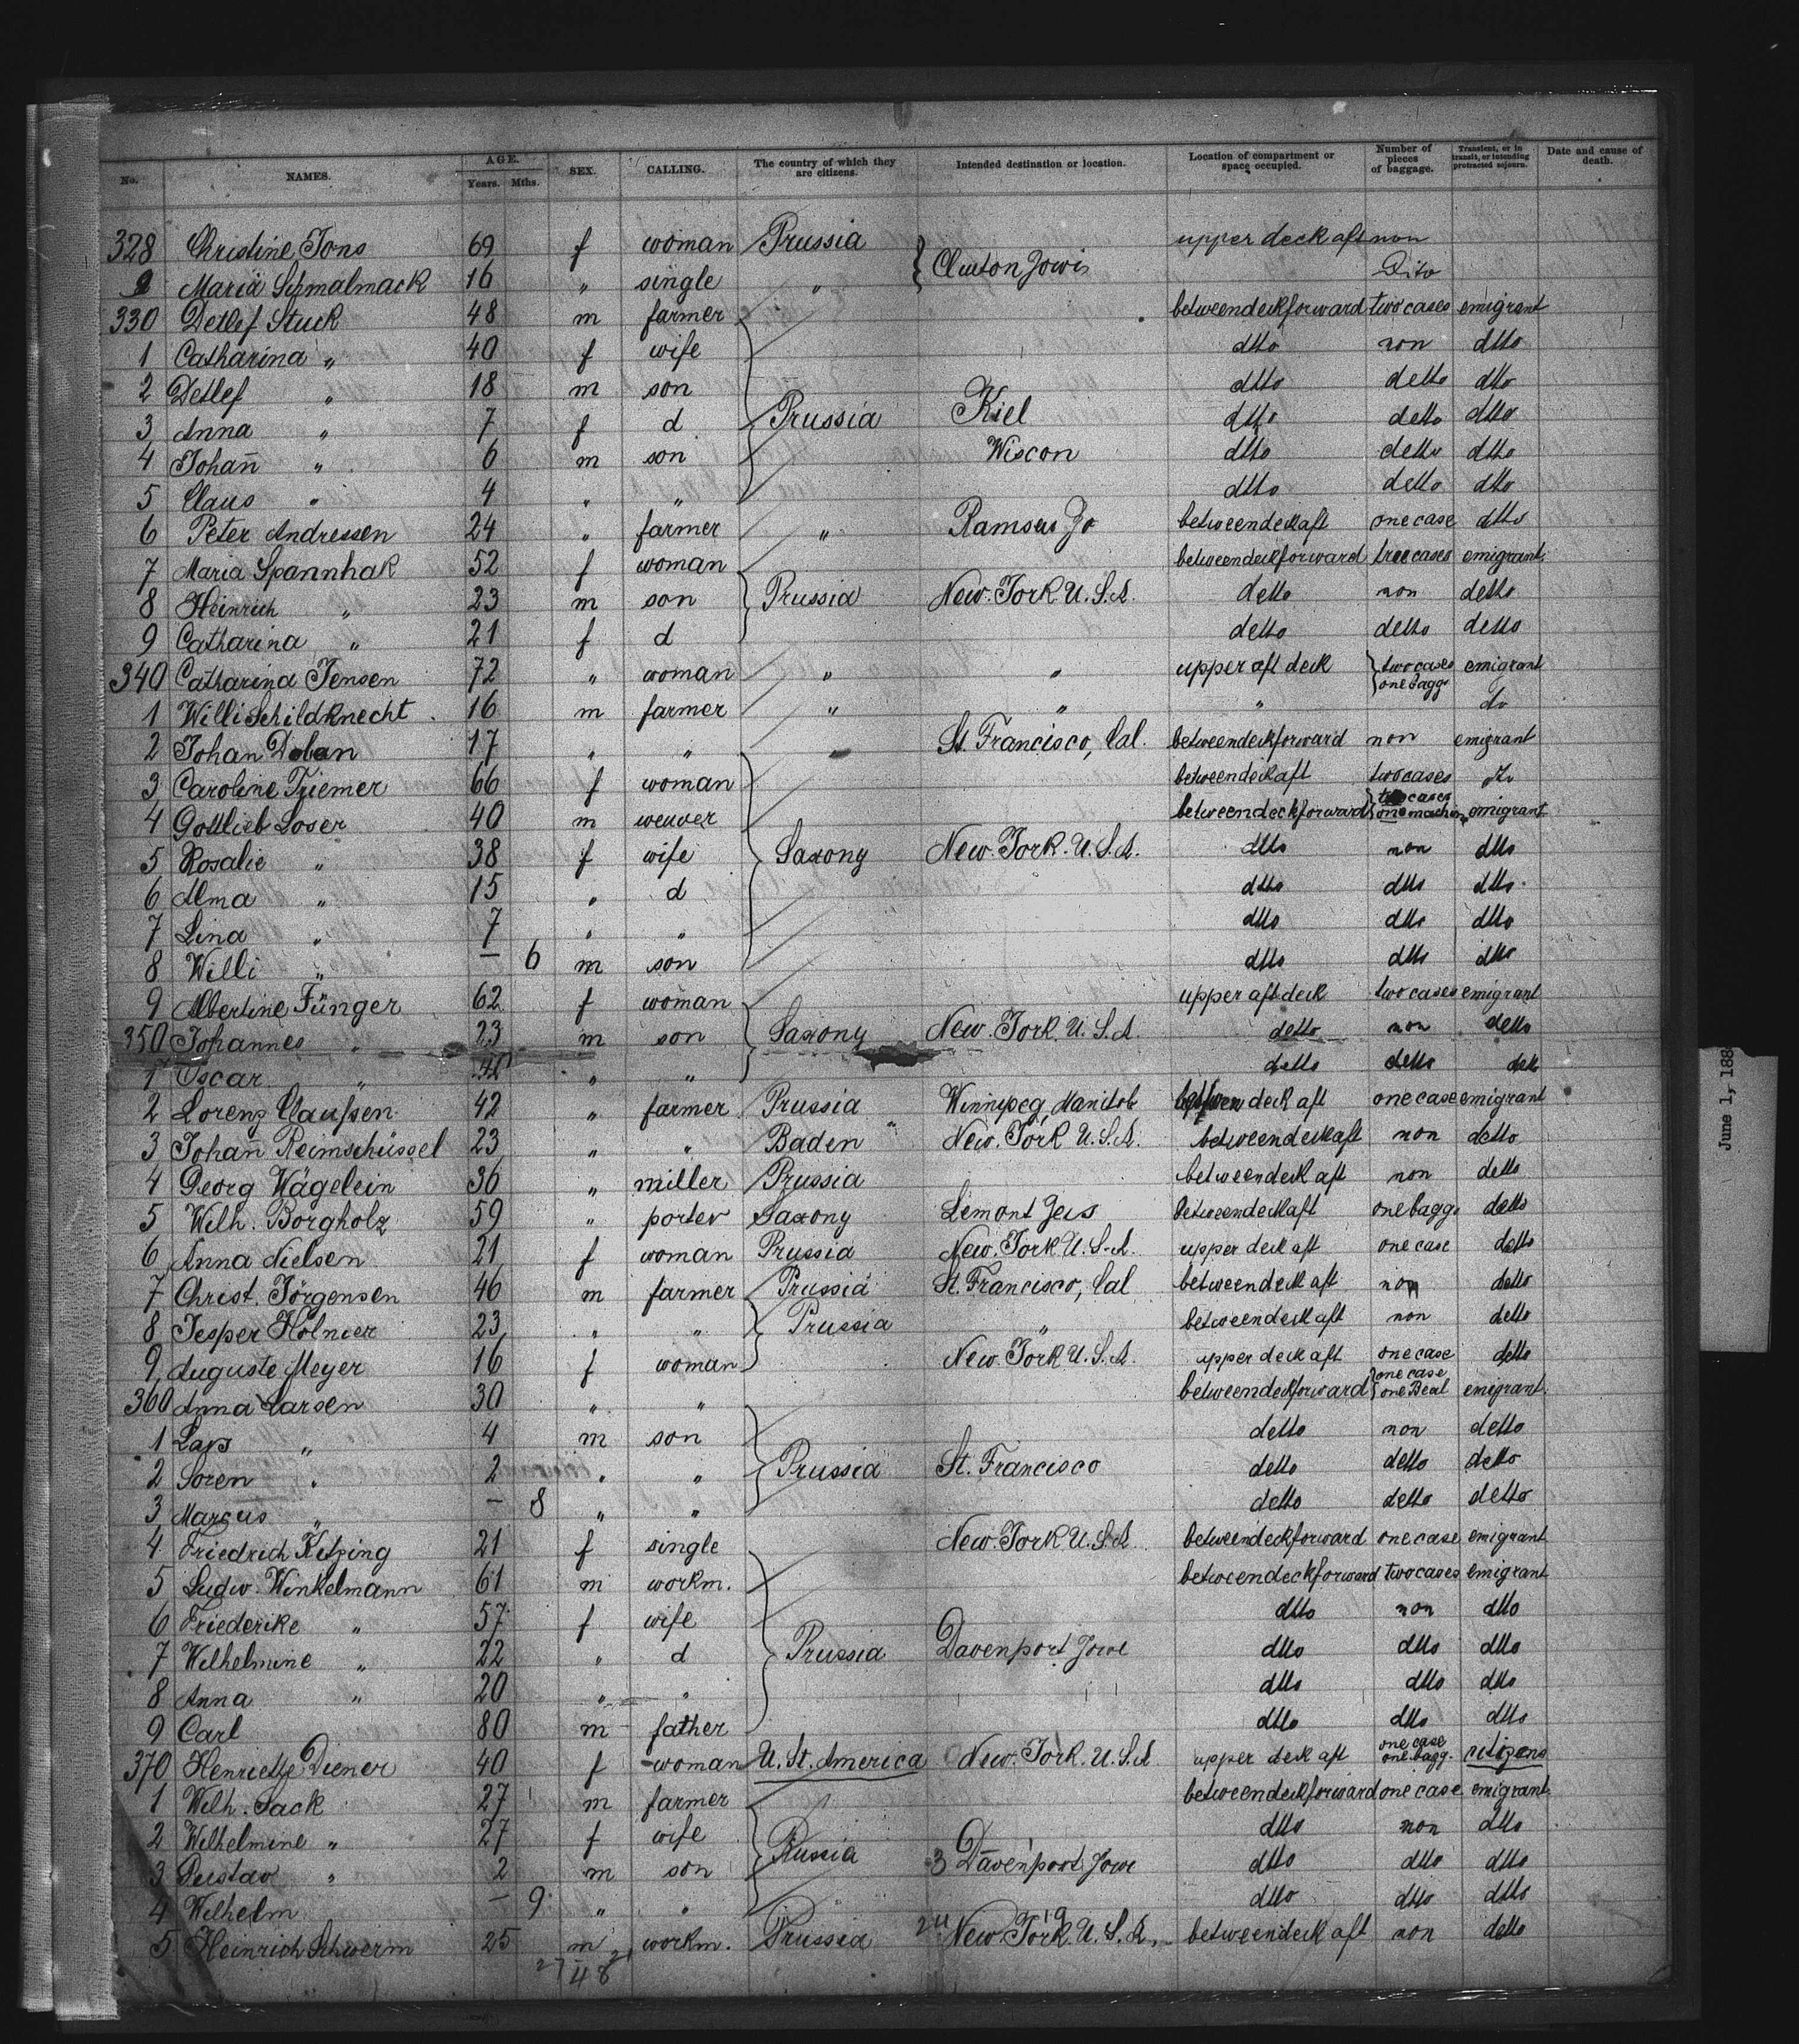 No. NAMES. AGE. Years. Mths. SEX. CALLING. The country of which they are citizens. Intended destination or location. Location of compartment or space occupied. Number of pieces of baggage. Transient, or in transit, or intending protracted sojourn. Date and cause of death.
328 Christine Jons 69 f woman Prussia upper deck aft non
9 Maria Schmalmack 16 " single " Clinton Jowi Dito
330 Detlef Stuck 48 m farmer betweendeckforward two cases emigrant
1 Catharina " 40 f wife dtto non dtto
2 Detlef " 18 m son dtto detto dtto
3 Anna " 7 f d Prussia Kiel dtto detto dtto
4 Johan̄ " 6 m son Wiscon dtto detto dtto
5 Claus " 4 " " dtto detto dtto
6 Peter Andressen 24 " farmer " Jo betweendeckaft one case dtto
7 Maria Spannhak 52 f woman betweendeckforward tree cases emigrant
8 Heinrich " 23 m son Prussia New. York U. S. A. detto non detto
9 Catharina " 21 f d detto detto detto
340 Catharina Jensen 72 " woman " " upper aft deck two cases one bagg. emigrant
1 Willi Schildknecht 16 m farmer " " " do
2 Johan Doban 17 " " " St. Francisco, Cal. betweendeckforward non emigrant
3 Caroline Triemer 66 f woman betweendeckaft two cases do
4 Gottlieb Loser 40 m weuver betweendeckforward cases one machin emigrant
5 Rosalie " 38 f wife Saxony New. York. U. S. A. dtto non dtto
6 Alma " 15 " d dtto dtto dtto
7 Lina " 7 " " dtto dtto dtto
8 Willi " – 6 m son dtto dtto dtto
9 Albertine Fünger 62 f woman upper aft deck two cases emigrant
350 Johannes " 23 m son Saxony New. York. U. S. A. detto non detto
1 Oscar " " " detto detto dett
2 Lorenz Claußen 42 " farmer Prussia Winnipeg, Manitob between deck aft one case emigrant
3 Johan̄ Reimschüssel 23 " " Baden New. York U. S. A. betweendeckaft non detto
4 Georg Wägelein 36 " miller Prussia betweendeck aft non detto
5 Wilh. Borgholz 59 " porter Saxony Lemont betweendeckaft one bagg. detto
6 Anna Nielsen 21 f woman Prussia New. York U. S. A. upper deck aft one case detto
7 Christ. Jörgensen 46 m farmer Prussia St. Francisco, Cal betweendeck aft non detto
8 Jesper Holmer 23 " " Prussia " betweendeck aft non detto
9 Auguste Meyer 16 f woman New. York U. S. A. upper deck aft one case detto
360 Anna Larsen 30 " " betweendeckforward one case one Beal emigrant.
1 Lars " 4 m son detto non detto
2 Soren " 2 " " Prussia St. Francisco detto detto detto
3 Marcus " – 8 " " detto detto detto
4 Friedrich Ketzing 21 f single New. York U. S. A. betweendeckforward one case emigrant
5 Ludw. Winkelmann 61 m workm. betweendeckforward two cases emigrant
6 Friederike " 57 f wife dtto non dtto
7 Wilhelmine " 22 " d Prussia Davenport Jowe dtto dtto dtto
8 Anna " 20 " " dtto dtto dtto
9 Carl 80 m father dtto dtto dtto
370 Henriette Diener 40 f woman U. St. America New. York. U. S. A upper deck aft one case one bagg. citizens
1 Wilh. Sack 27 m farmer betweendeckforward one case emigrant
2 Wilhelmine " 27 f wife dtto non dtto
3 Gustav " 2 m son Prussia 3 Davenport Jowe dtto dtto dtto
4 Wilhelm – 9 " " dtto dtto dtto
5 Heinrich Schwerm 25 m workm. Prussia 24 19 New. York. U. S. A. betweendeck aft non detto
27 21
48
June 1, 188